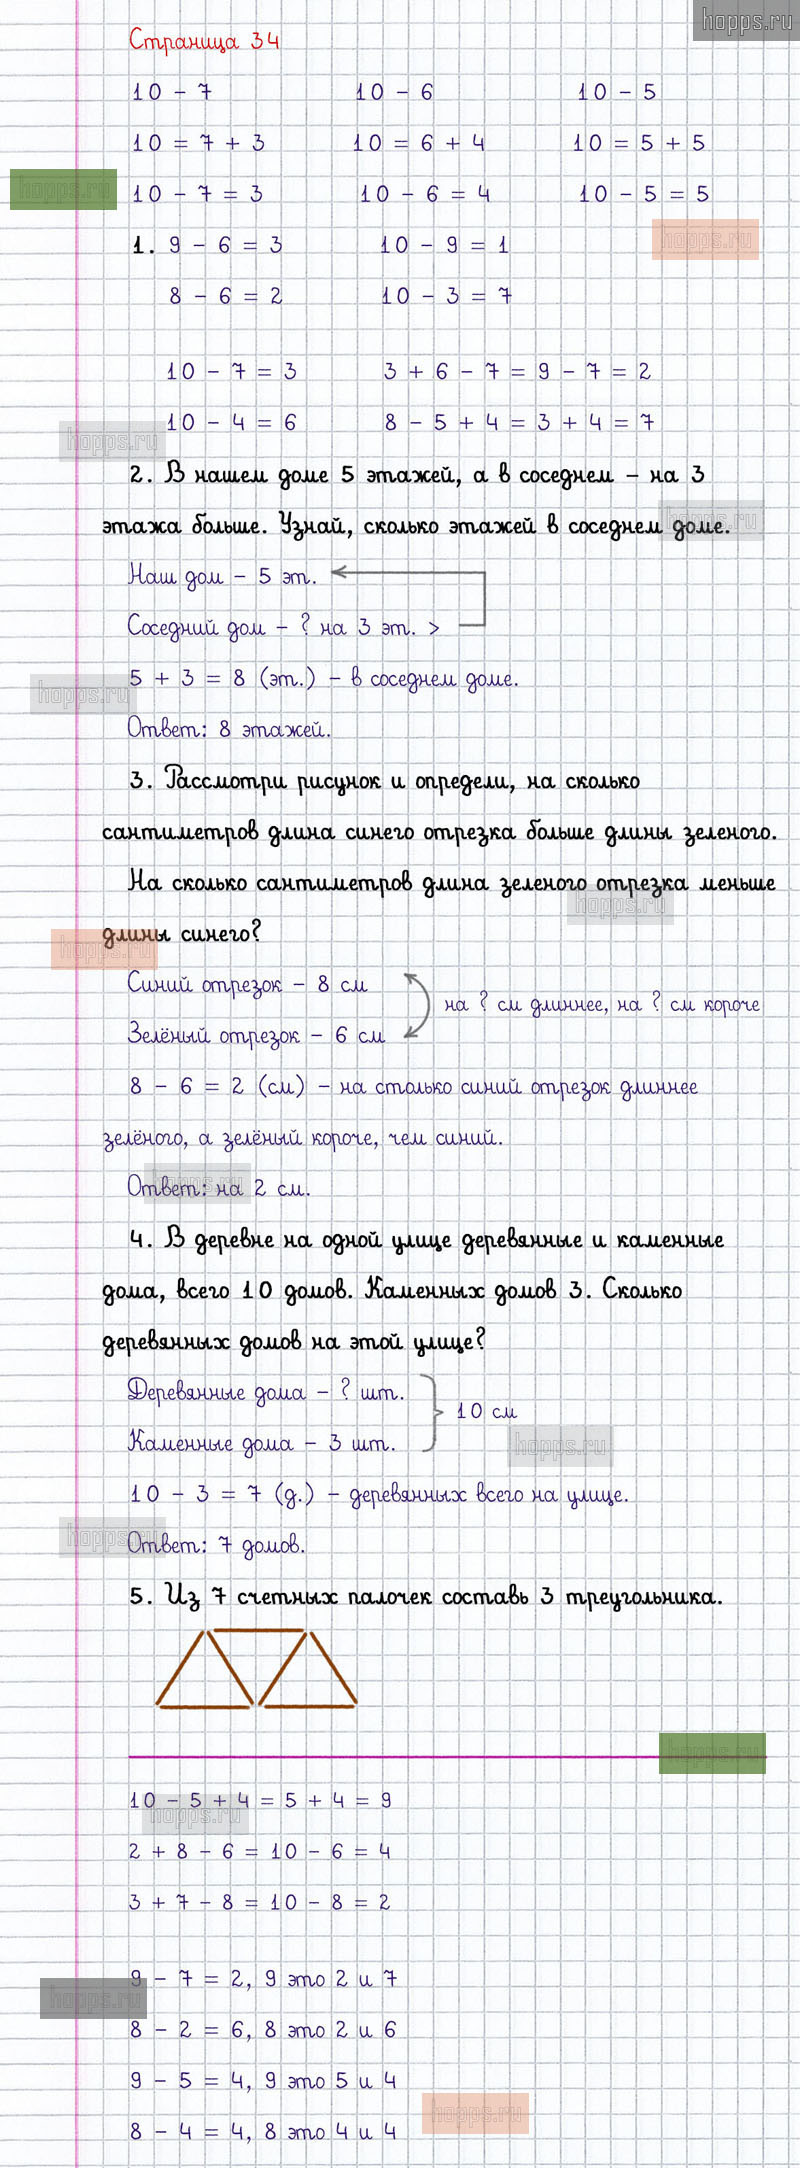 hopps.ru
Страница 34
10 - 7 10 - 6 10 - 5
10 = 7 + 3 10 = 6 + 4 10 = 5 + 5
hopps.ru
10 - 7 = 3 10 - 6 = 4 10 - 5 = 5
1. 9 - 6 = 3 10 - 9 = 1
hopps.ru
8 - 6 = 2 10 - 3 = 7
10 - 7 = 3 3 + 6 - 7 = 9 - 7 = 2
10 - 4 = 6 8 - 5 + 4 = 3 + 4 = 7
hopps.ru
2. В нашем доме 5 этажей, а в соседнем – на 3
этажа больше. Узнай, сколько этажей в соседнем доме.
hopps.ru
Наш дом – 5 эт.
Соседний дом – ? на 3 эт. >
5 + 3 = 8 (эт.) – в соседнем доме.
hopps.ru
Ответ: 8 этажей.
3. Рассмотри рисунок и определи, на сколько
сантиметров длина синего отрезка больше длины зеленого.
На сколько сантиметров длина зеленого отрезка меньше
hopps.ru
длины синего?
hopps.ru
Синий отрезок – 8 см
на ? см длиннее, на ? см короче
Зелёный отрезок – 6 см
8 - 6 = 2 (см) – на столько синий отрезок длиннее
зелёного, а зелёный короче, чем синий.
hopps.ru
Ответ: на 2 см.
4. В деревне на одной улице деревянные и каменные
дома, всего 10 домов. Каменных домов 3. Сколько
деревянных домов на этой улице?
Деревянные дома – ? шт.
10 см
Каменные дома – 3 шт.
hopps.ru
10 - 3 = 7 (д.) – деревянных всего на улице.
hopps.ru
Ответ: 7 домов.
5. Из 7 счетных палочек составь 3 треугольника.
hopps.ru
10 - 5 + 4 = 5 + 4 = 9
hopps.ru
2 + 8 - 6 = 10 - 6 = 4
3 + 7 - 8 = 10 - 8 = 2
9 - 7 = 2, 9 это 2 и 7
hopps.ru
8 - 2 = 6, 8 это 2 и 6
9 - 5 = 4, 9 это 5 и 4
hopps.ru
8 - 4 = 4, 8 это 4 и 4